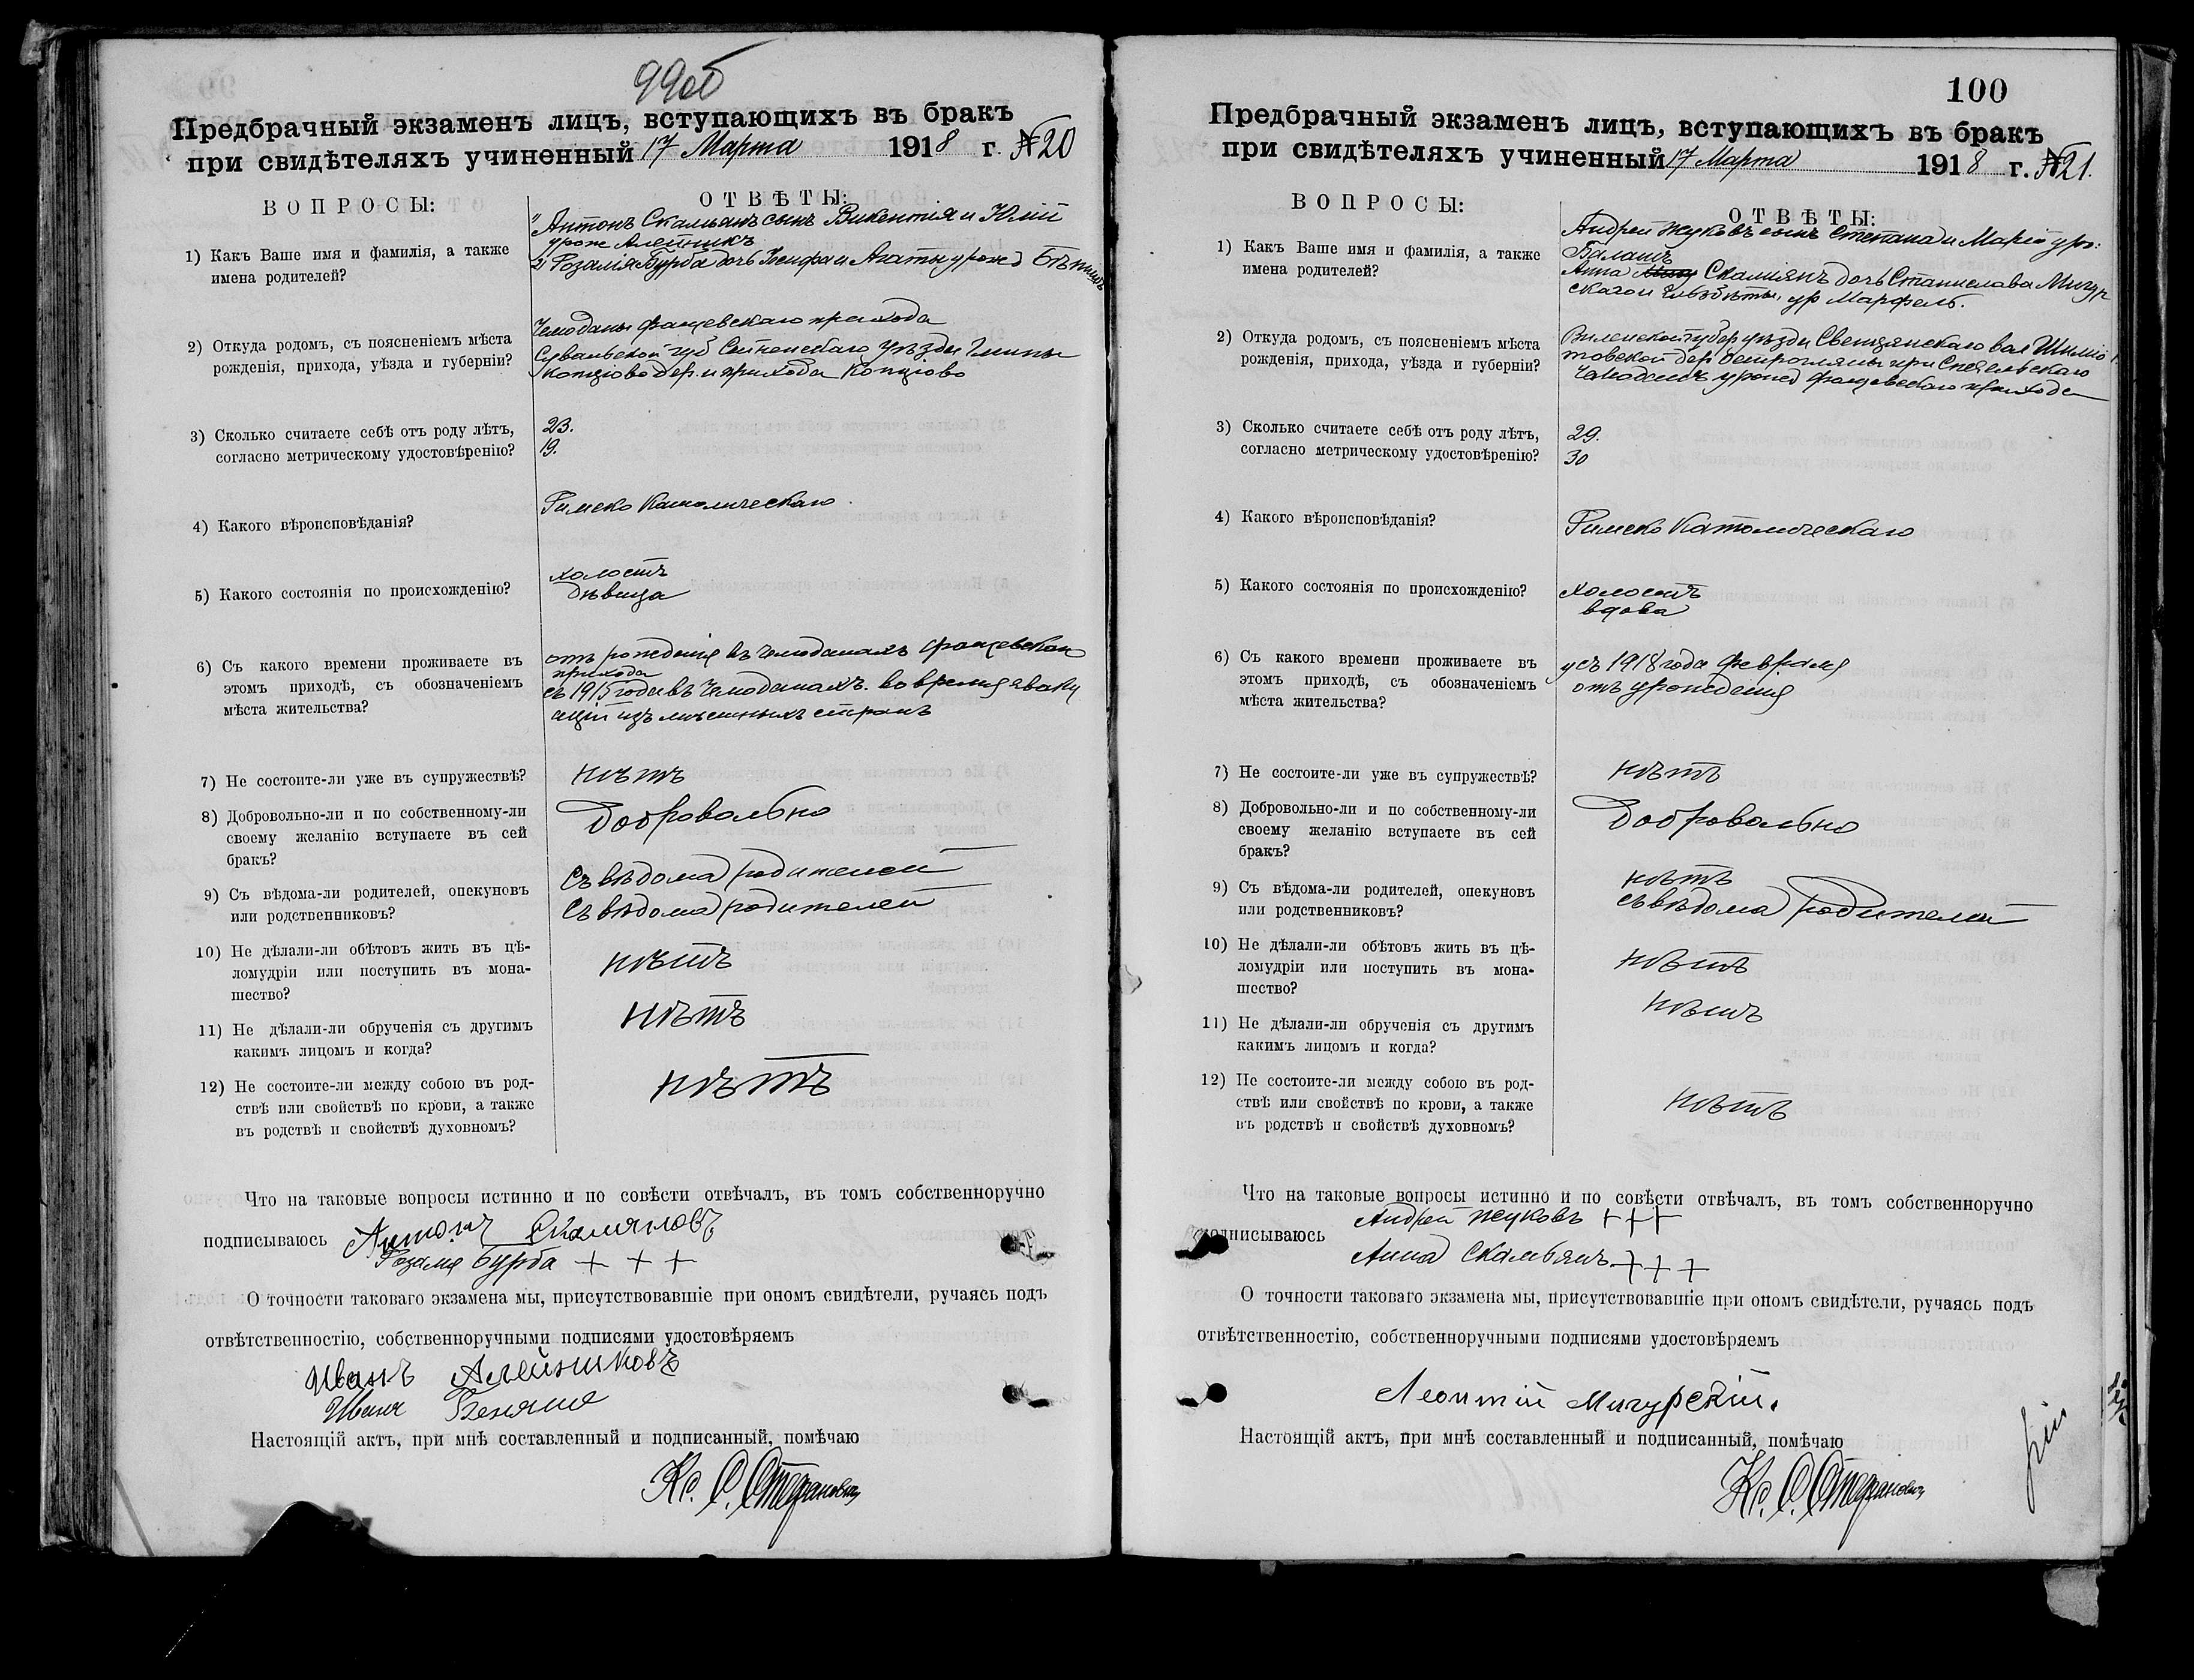 99об
Предбрачный экзаменъ лицъ, вступающихъ въ бракъ
при свидѣтеляхъ учиненный 17 Марта 1918 г. № 20
ВОПРОСЫ:
ОТВѢТЫ:
1) Какъ Ваше имя и фамилія, а также
имена родителей?
1) Антонъ Скальянъ сынъ Викентія и Юліи
урож Алейникъ
2) Розалія Бурба дочь Іосифа и Агаты урожд
2) Откуда родомъ, съ поясненіемъ мѣста
рожденія, прихода, уѣзда и губерніи?
Чемоданы фащевскаго прихода
Сувальской губ Сейненскаго уѣзда Гмины
Копціово дер. и прихода Копціово
3) Сколько считаете себѣ отъ роду лѣтъ,
согласно метрическому удостовѣренію?
23.
19.
4) Какого вѣроисповѣданія?
Римско Католическаго
5) Какого состоянія по происхожденію?
холостъ
дѣвица
6) Съ какого времени проживаете въ
этомъ приходѣ, съ обозначеніемъ
мѣста жительства?
отъ рожденія въ Чемоданахъ фащевскаго
прихода
съ 1915 года въ Чемоданахъ. во время эваку
аціи изъ странъ
7) Не состоите-ли уже въ супружествѣ?
нѣтъ
8) Добровольно-ли и по собственному-ли
своему желанію вступаете въ сей
бракъ?
Добровольно
9) Съ вѣдома-ли родителей, опекуновъ
или родственниковъ?
Съ вѣдома родителей
Съ вѣдома родителей
10) Не дѣлали-ли обѣтовъ жить въ цѣ-
ломудріи или поступить въ мона-
шество?
нѣтъ
11) Не дѣлали-ли обрученія съ другимъ
какимъ лицомъ и когда?
нѣтъ
12) Не состоите-ли между собою въ род-
ствѣ или свойствѣ по крови, а также
въ родствѣ и свойствѣ духовномъ?
нѣтъ
Что на таковые вопросы истинно и по совѣсти отвѣчалъ, въ томъ собственноручно
подписываюсь Антонъ Скаляновъ
Розалія Бурба + + +
О точности таковаго экзамена мы, присутствовавшіе при ономъ свидѣтели, ручаясь подъ
отвѣтственностію, собственноручными подписями удостовѣряемъ
Иванъ Алейниковъ
Иванъ
Настоящій актъ, при мнѣ составленный и подписанный, помѣчаю
Кс. С. Стефановичъ
100
Предбрачный экзаменъ лицъ, вступающихъ въ бракъ
при свидѣтеляхъ учиненный 17 Марта 1918 г. № 21.
ВОПРОСЫ:
ОТВѢТЫ:
1) Какъ Ваше имя и фамилія, а также
имена родителей?
Андрей Жуковъ сынъ Степана и Маріи уро:
Балашъ
Анна Скаліянъ дочь Станислава Мигур
скаго и Эльзбѣты, ур Марфель.
2) Откуда родомъ, съ поясненіемъ мѣста
рожденія, прихода, уѣзда и губерніи?
Виленской губер уѣзда Свенцянскаго вол
товской дер при
урожд фащевскаго прихода
3) Сколько считаете себѣ отъ роду лѣтъ,
согласно метрическому удостовѣренію?
29.
30
4) Какого вѣроисповѣданія?
Римско Католическаго
5) Какого состоянія по происхожденію?
холостъ
вдова
6) Съ какого времени проживаете въ
этомъ приходѣ, съ обозначеніемъ
мѣста жительства?
съ 1918 года февраля
отъ урожденія
7) Не состоите-ли уже въ супружествѣ?
нѣтъ
8) Добровольно-ли и по собственному-ли
своему желанію вступаете въ сей
бракъ?
Добровольно
9) Съ вѣдома-ли родителей, опекуновъ
или родственниковъ?
нѣтъ
съ вѣдома родителей
10) Не дѣлали-ли обѣтовъ жить въ цѣ-
ломудріи или поступить въ мона-
шество?
нѣтъ
11) Не дѣлали-ли обрученія съ другимъ
какимъ лицомъ и когда?
нѣтъ
12) Не состоите-ли между собою въ род-
ствѣ или свойствѣ по крови, а также
въ родствѣ и свойствѣ духовномъ?
нѣтъ
Что на таковые вопросы истинно и по совѣсти отвѣчалъ, въ томъ собственноручно
подписываюсь Андрей Жуковъ +++
Анна Скальянъ +++
О точности таковаго экзамена мы, присутствовавшіе при ономъ свидѣтели, ручаясь подъ
отвѣтственностію, собственноручными подписями удостовѣряемъ
Леонтій Мигурскій.
Настоящій актъ, при мнѣ составленный и подписанный, помѣчаю
Кс. С. Стефановичъ